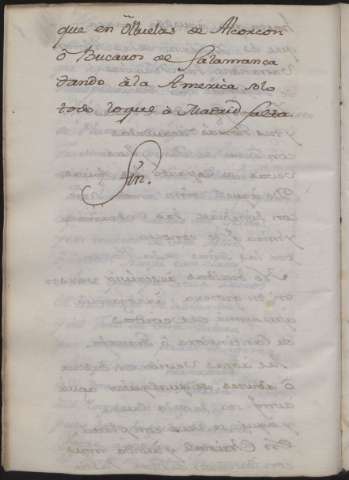 que en Olluelas de Alcorcon
ô Bucaros de Salamanca
dando â la America solo
todo lo que â Madrid
Fin.